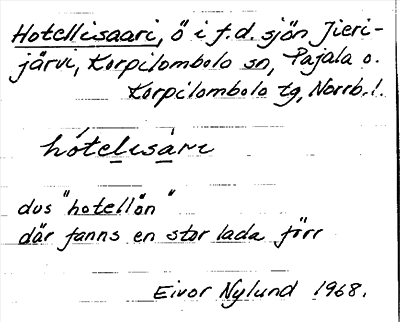 Hotellisaari, ö i f.d. sjön Jieri-
järvi, Korpilombolo sn, Pajala o.
Korpilombolo tg, Norrb.l.
hótelisàri
dvs "hotellön"
där fanns en stor lada förr
Eivor Nylund 1968.